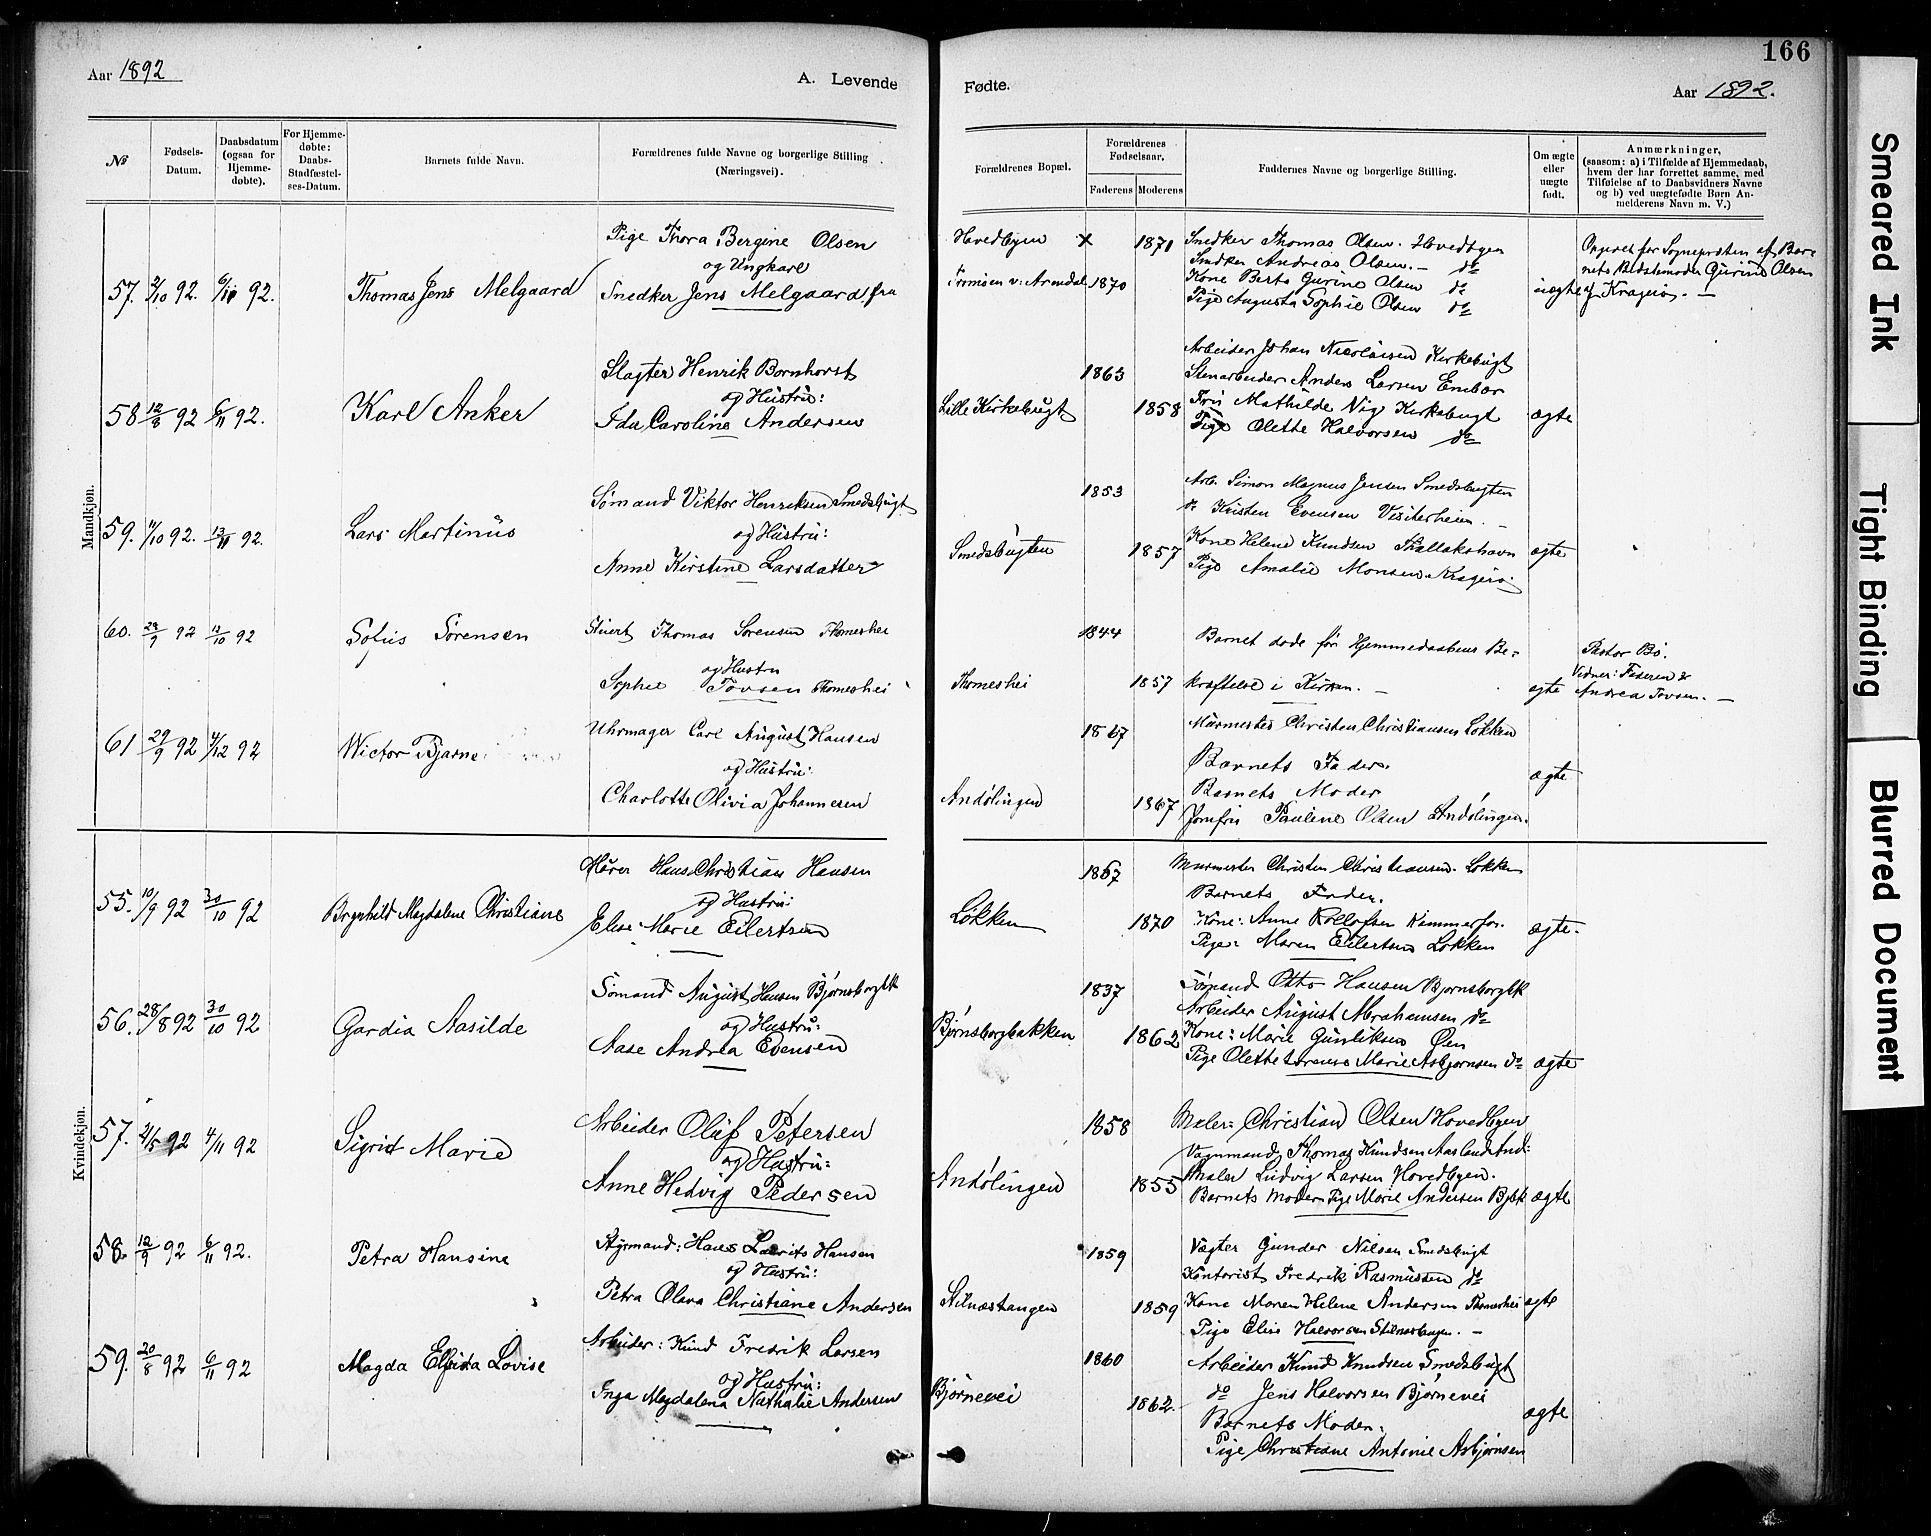 166
Aar 1892
A. Levende
Fødte.
Aar 1892.
№
Fødsels-Datum.
Daabsdatum (ogsaa for Hjemme-døbte).
For Hjemme-døbte: Daabs-Stadfæstel-ses-Datum.
Barnets fulde Navn.
Forældrenes fulde Navne og borgerlige Stilling (Næringsvei).
Forældrenes Bopæl.
Forældrenes Fødselsaar.
Faderens
Moderens
Faddernes Navne og borgerlige Stilling.
Om ægte eller uægte født.
Anmærkninger,
(saasom: a) i Tilfælde af Hjemmedaab,
hvem der har forrettet samme, med
Tilføielse af to Daabsvidners Navne
og b) ved uægtefødte Børn An-
melderens Navn m. V.)
Mandkjøn.
Pige Thora Bergine Olsen
og Ungkarl
57. 2/10 92. 6/11 92. Thomas Jens Melgaard
Snedker Jens Melgaard, fra
Hovedbyen x 1871
Tromøen v: Arendal 1870
Snedker Thomas Olsen. Hovedbyen
Snedker Andreas Olsen. — do
Kone Berte Gurine Olsen do
Pige Augusta Sophie Olsen do
uægte
Opgivet for Sogneprosten af Bar-
nets Bedstemoder Gurine Olsen
af Kragerø. —
58 12/8 92 6/11 92. Karl Anker
Slagter Henrik Bornhorst
og Hustru:
Ida Caroline Andersen
Lille Kirkebugt
1863
1858
Arbeider Johan Nicolaisen Kirkebugt
Stenarbeider Anders Larsen
Fru Mathilde Kirkebugt
Pige Olette Halvorsen do
ægte
59. 11/10 92. 13/11 92. Lars Martinus
Sømand Viktor Henriksen Smedsbugt
og Hustru:
Anne Kirstine Larsdatter
Smedsbugten
1853
1857
Arb. Simon Magnus Jensen Smedsbugten
do Kristen Evensen
Kone Helene Knudsen
Pige Amalie Monsen. Kragerø.
ægte
60. 9 92 10 92 Sofus Sørensen
Stuert Thomas Sørensen Thomeshei
og Hustru
Sophie Tovsen Thomeshei
Thomeshei
1844
1857
Barnet døde før Hjemmedaabens Be-
kræftelse i Kirken. —
ægte
Pastor Bö.
Vidner: Faderen &
Andrea Tovsen. —
61 29/9 92 4/12 92 Wictor Bjarne
Uhrmager Carl August Hansen
og Hustru:
Charlotte Olivia Johannesen
Andølingen
1867
1867
Murmester Christen Christiansen Løkken
Barnets Fader.
Barnets Moder
Jomfru Pauline Olsen Andølingen.
ægte
Kvindekjøn.
55. 10/9 92 30/10 92 Brynhild Magdalene Christiane
Murer Hans Christian Hansen
og Hustru:
Elise Marie Eilertsen
Løkken
1867
1870
Murmester Christen Christiansen. Løkken
Barnets Fader.
Kone: Anne Rollofsen Kammerfos.
Pige: Maren Eilertsen Løkken
ægte.
56. 28/8 92 30/10 92 Gardia Aasilde
Sømand August Hansen Bjørnsborgbk
og Hustru:
Aase Andrea Evensen
Bjørnsborgbakken
1837
1862
Sømand Otto Hansen Bjørnsborgbk
Arbeider August Abrahamsen do
Kone: Marie Gunliksen Øen
Pige Olette Lorense Marie Asbjørnsen do
ægte
57. 2/5 92 4/11 92 Sigrid Marie
Arbeider Oluf Petersen
og Hustru:
Anne Hedvig Pedersen
Andølingen
1858
1855
Maler Christian Olsen Hovedbyen
Vognmand Thomas Knudsen Aasland And:
Maler Ludvig Larsen Hovedbyen.
Barnets Moder Pige Marie Andersen Bjbk
ægte
58. 12/9 92 6/11 92. Petra Hansine
Styrmand: Hans Laurits Hansen
og Hustru:
Petra Olava Christiane Andersen
Stilnæstangen
1859
1859
Vægter Gunder Nilsen Smedsbugt
Kontorist Fredrik Rasmussen do
Kone Maren Helene Andersen Thomeshei
Pige Elise Halvorsen Stilnæstangen. —
ægte
59. 20/8 92 6/11 92 Magda Elfrida Lovise
Arbeider: Knud Fredrik Larsen
og Hustru:
Inga Magdalena Nathalie Andersen
Bjørnevei
1860
1862.
Arbeider Knud Knudsen Smedsbugt
do Jens Halvorsen Bjørnevei
Barnets Moder.
Pige Christiane Antonie Asbjørnsen
ægte
Smeared Ink
Tight Binding
Blurred Document